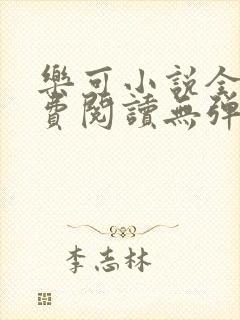 樂可小說全
費閱讀無彈
李志林